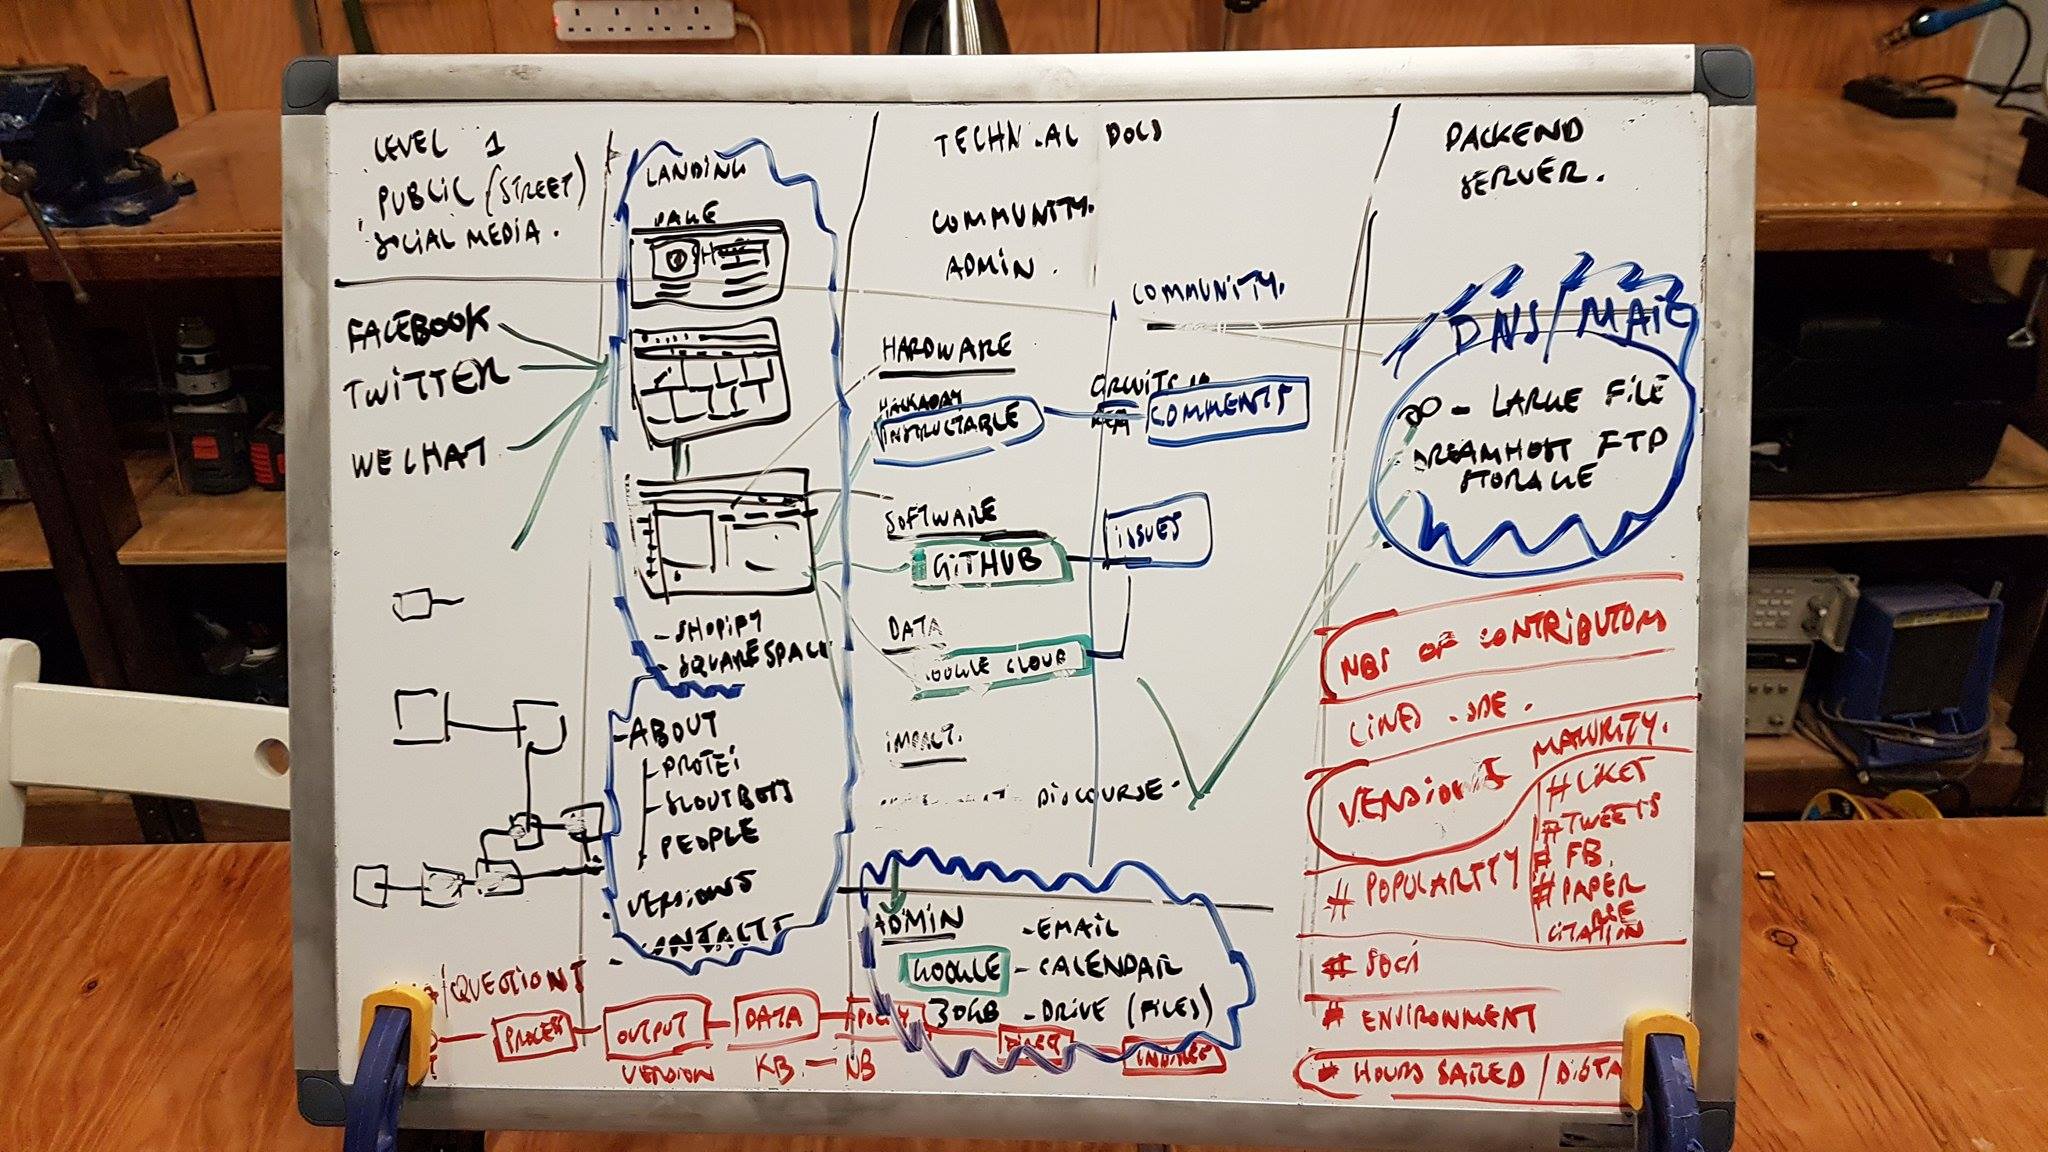 LEVEL 1
PUBLIC (STREET)
SOCIAL MEDIA.
FACEBOOK
TWITTER
WECHAT
LANDING
PAGE
- SHOPIFY
- SQUARESPACE
- ABOUT
- PROTEI
- SCOUTBOTS
PEOPLE
VERSIONS
CONTACTS
TECHNICAL DOCS
COMMUNITY.
ADMIN.
COMMUNITY.
HARDWARE
HACKADAY
INSTRUCTABLE
COMMENTS
SOFTWARE
GITHUB
ISSUES
DATA
GOOGLE CLOUD
IMPACT.
DISCOURSE.
ADMIN
GOOGLE
30GB
- EMAIL
- CALENDAR
- DRIVE (FILES)
BACKEND
SERVER.
DNS/MAIL
- LARGE FILE
DREAMHOST FTP
STORAGE
NBS OF CONTRIBUTORS
LINES
VERSIONS
MATURITY.
# POPULARITY
# LIKES
# TWEETS
# FB.
# PAPER
CITATION
# SOCI
# ENVIRONMENT
# HOURS SAILED / DISTA
/QUESTIONS
PROCESS
OUTPUT
DATA
DIRECT
VERSION
KB. - NB